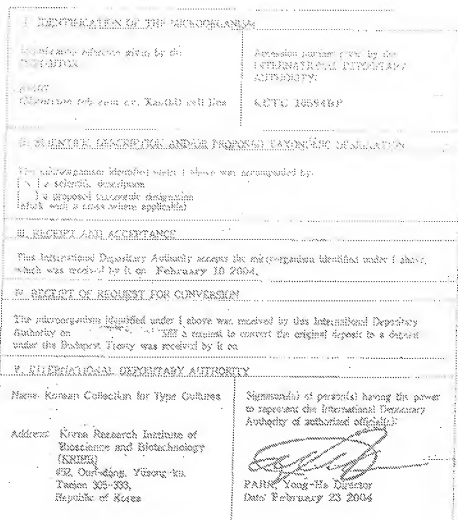 I. IDENTIFICATION OF THE MICROORGANISM
Identification reference given by the
DEPOSITOR:
Accession number given by the
INTERNATIONAL DEPOSITARY
AUTHORITY:
cell line
KCTC 10594BP
II. SCIENTIFIC DESCRIPTION AND/OR PROPOSED TAXONOMIC DESIGNATION
The microorganism identified under I above was accompanied by:
[ x ] a scientific description
[ ] a proposed taxonomic designation
(Mark with a cross where applicable)
III. RECEIPT AND ACCEPTANCE
This International Depositary Authority accepts the microorganism identified under I above,
which was received by it on February 10 2004.
IV. RECEIPT OF REQUEST FOR CONVERSION
The microorganism identified under I above was received by this International Depositary
Authority on and a request to convert the original deposit to a deposit
under the Budapest Treaty was received by it on
V. INTERNATIONAL DEPOSITARY AUTHORITY
Name: Korean Collection for Type Cultures
Address: Korea Research Institute of
Bioscience and Biotechnology
(KRIBB)
#52, Oun-dong, Yusong-ku,
Taejon 305-333,
Republic of Korea
Signature(s) of person(s) having the power
to represent the International Depositary
Authority of authorized official(s):
PARK, Yong-Ha Director
Date: February 23 2004